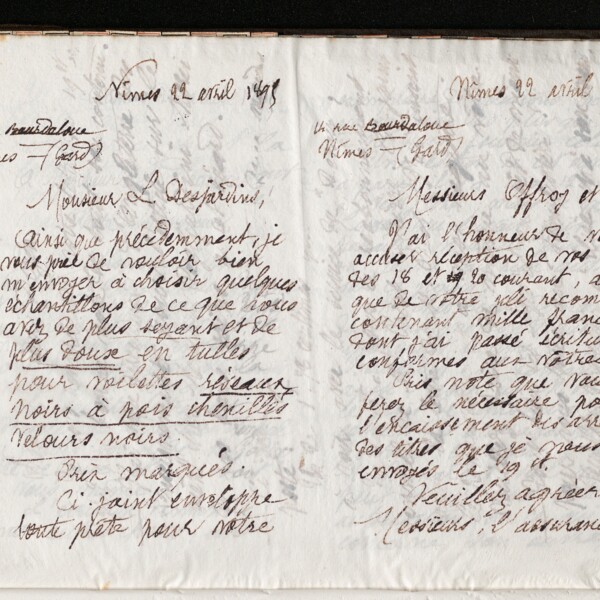 Nîmes 22 avril 1895
Bourdaloue
es - (Gard)
Monsieur L. Desjardins,
Ainsi que précédemment, je
vous prie de vouloir bien
m'envoyer à choisir quelques
échantillons de ce que vous
avez de plus soyant et de
plus doux en tulles
pour voilettes réseaux
noirs à pois chenillés
velours noirs.
Prix marqués.
Ci joint enveloppe
toute prête pour votre
Nîmes 22 avril
14 rue Bourdaloue
Nîmes - (Gard)
Messieurs Offroy et
J'ai l'honneur de v
accuser réception de vos
des 18 et 20 courant, a
que de votre pli recom
contenant mille franc
dont j'ai passé écritu
conformes aux vôtres
Pris note que vous
ferez le nécessaire po
l'encaissement des arr
des titres que je vous
envoyés le 19 ct.
Veuillez agréer
Messieurs, l'assuranc